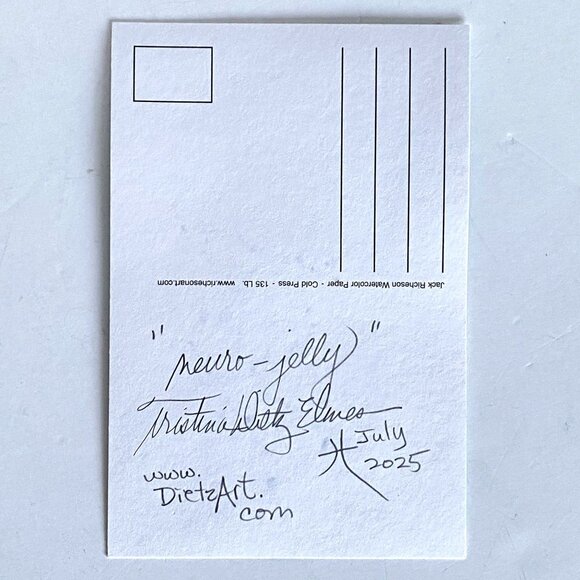 Jack Richeson Watercolor Paper - Cold Press - 135 Lb. www.richesonart.com
"neuro-jelly"
Tristina Dietz Elmes
July
2025
www.
DietzArt.
com